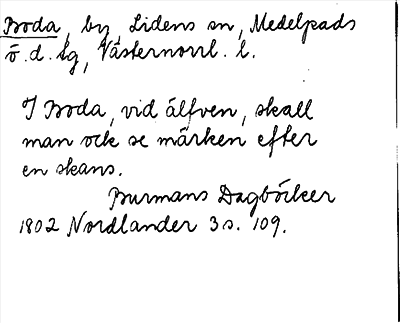 Boda, by, Lidens sn, Medelpads
ö. d. tg, Västernorrl. l.
I Boda, vid älfven, skall
man ock se märken efter
en skans.
Burmans Dagböcker
1802 Nordlander 3 s. 109.